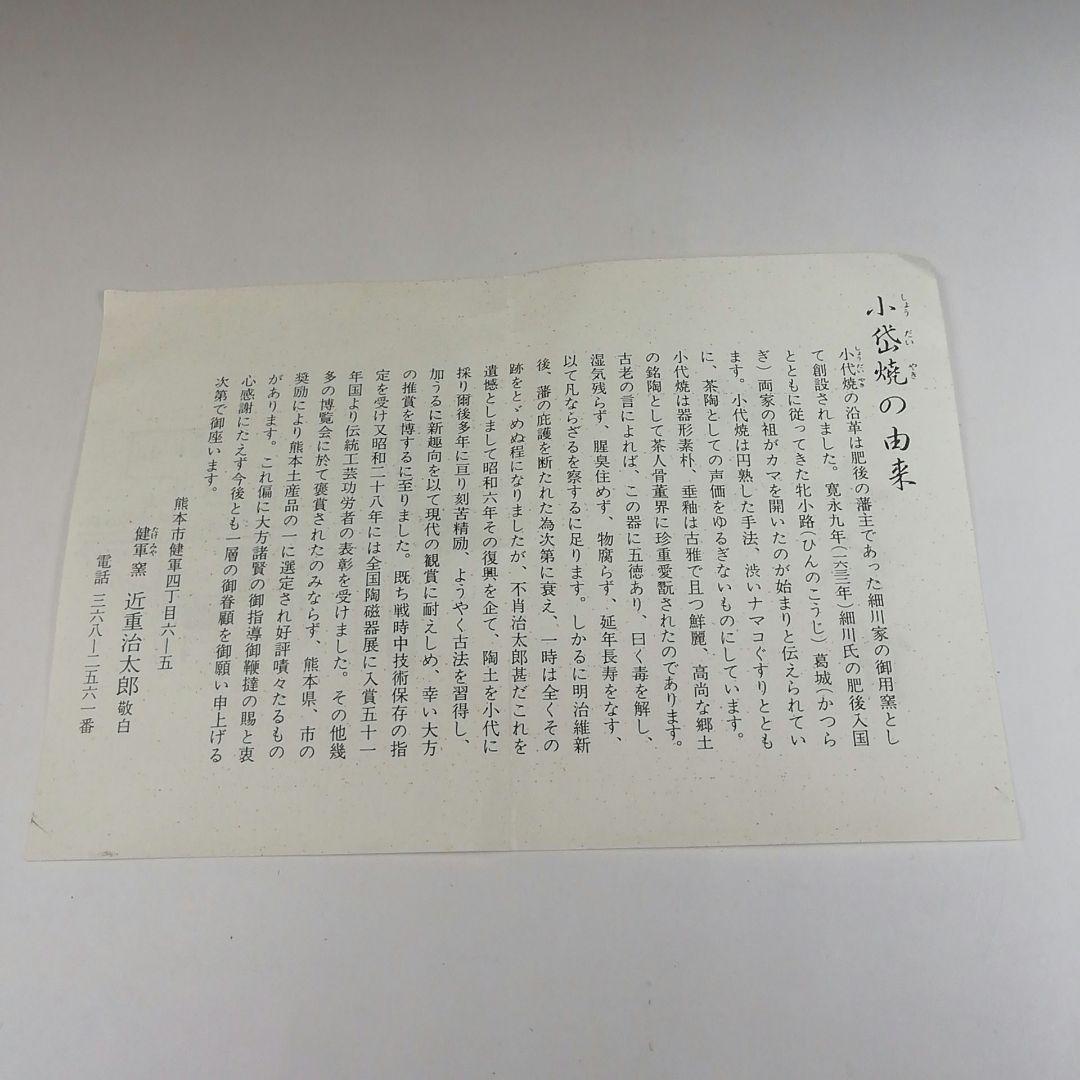 小岱焼の由来
しょう だい やき
小代焼の沿革は肥後の藩主であった細川家の御用窯とし
しょうだいやき
て創設されました。寛永九年(一六三二年)細川氏の肥後入国
とともに従ってきた牝小路(ひんのこうじ)葛城(かつら
ぎ)両家の祖がカマを開いたのが始まりと伝えられてい
ます。小代焼は円熟した手法、渋いナマコぐすりととも
に、茶陶としての声価をゆるぎないものにしています。
小代焼は器形素朴、垂釉は古雅で且つ鮮麗、高尚な郷土
の銘陶として茶人骨董界に珍重愛翫されたのであります。
古老の言によれば、この器に五徳あり、曰く毒を解し、
湿気残らず、腥臭住めず、物腐らず、延年長寿をなす、
以て凡ならざるを察するに足ります。しかるに明治維新
後、藩の庇護を断たれた為次第に衰え、一時は全くその
跡をとゞめぬ程になりましたが、不肖治太郎甚だこれを
遺憾としまして昭和六年その復興を企て、陶土を小代に
採り爾後多年に亘り刻苦精励、ようやく古法を習得し、
加うるに新趣向を以て現代の観賞に耐えしめ、幸い大方
の推賞を博するに至りました。既ち戦時中技術保存の指
定を受け又昭和二十八年には全国陶磁器展に入賞五十一
年国より伝統工芸功労者の表彰を受けました。その他幾
多の博覧会に於て褒賞されたのみならず、熊本県、市の
奨励により熊本土産品の一に選定され好評嘖々たるもの
があります。これ偏に大方諸賢の御指導御鞭撻の賜と衷
心感謝にたえず今後とも一層の御眷顧を御願い申上げる
次第で御座います。
熊本市健軍四丁目六―五
健軍窯 近重治太郎 敬白
たけみや
電話 三六八―二五六一番